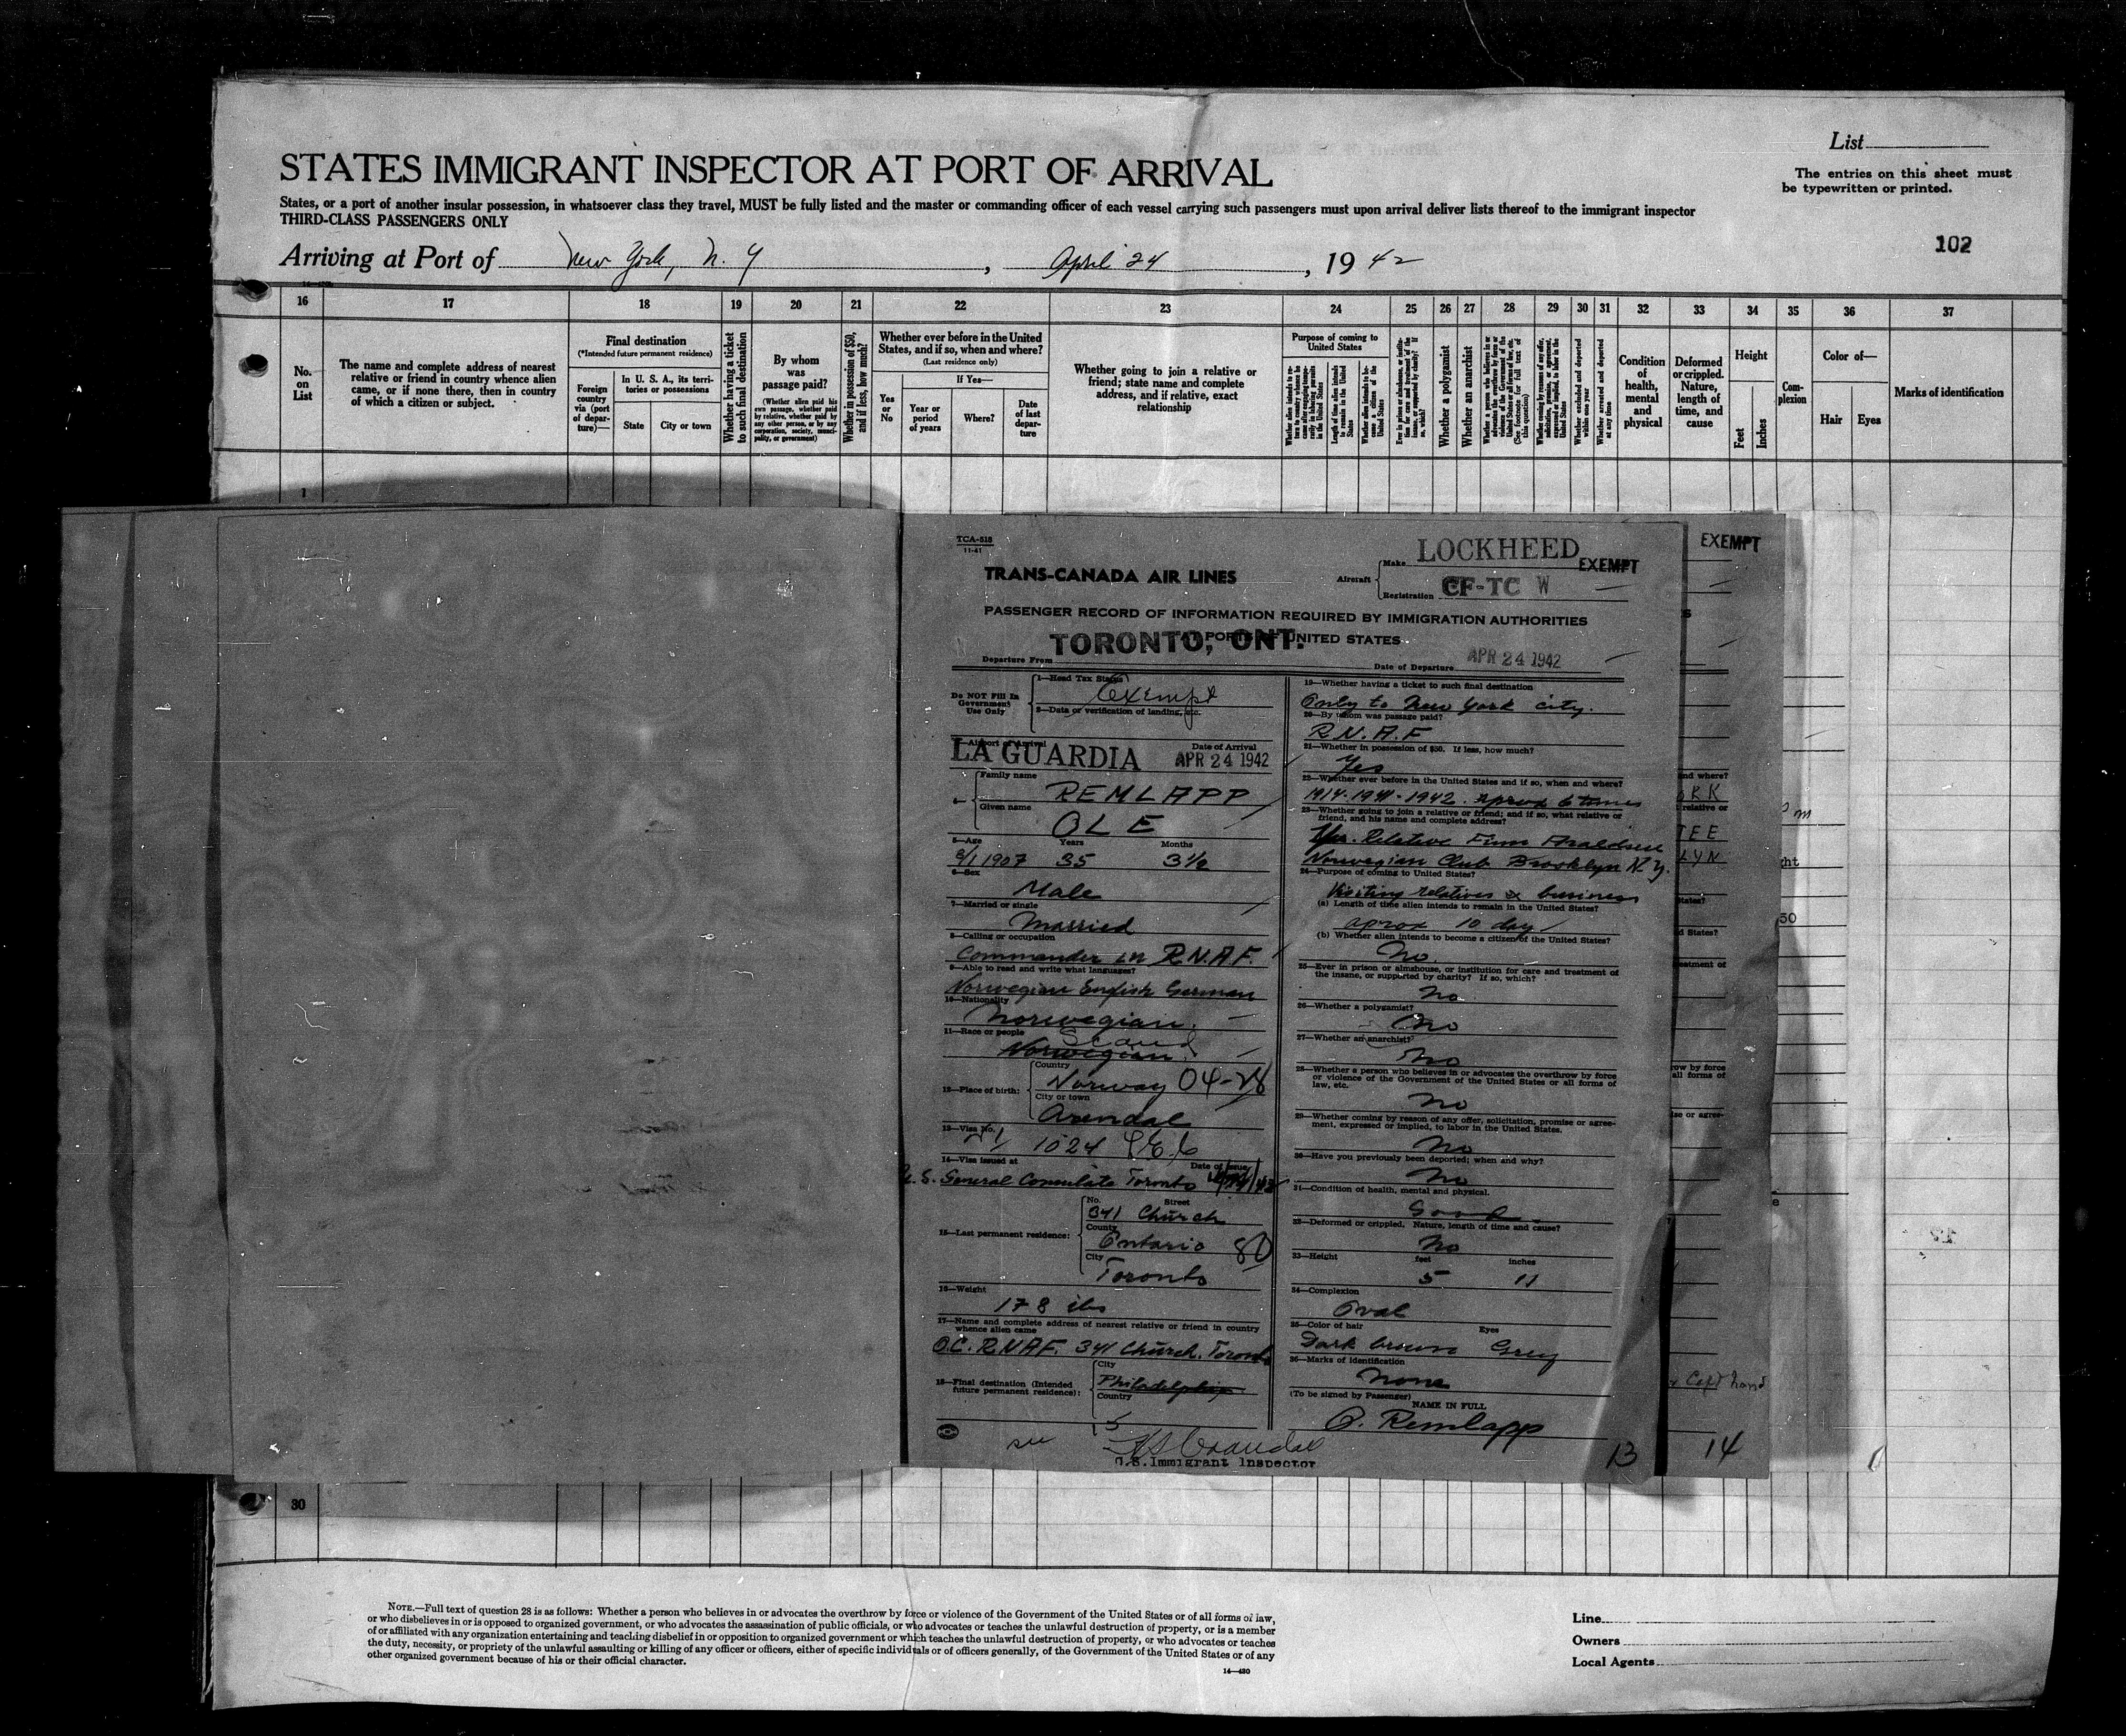 List
STATES IMMIGRANT INSPECTOR AT PORT OF ARRIVAL
The entries on this sheet must
be typewritten or printed.
States, or a port of another insular possession, in whatsoever class they travel, MUST be fully listed and the master or commanding officer of each vessel carrying such passengers must upon arrival deliver lists thereof to the immigrant inspector
THIRD-CLASS PASSENGERS ONLY
102
Arriving at Port of New York, N. Y , April 24 , 19 42
16 17 18 19 20 21 22 23 24 25 26 27 28 29 30 31 32 33 34 35 36 37
No.
on
List
The name and complete address of nearest
relative or friend in country whence alien
came, or if none there, then in country
of which a citizen or subject.
Final destination
(*Intended future permanent residence)
Foreign
country
via (port
of depar-
ture)—
In U. S. A., its terri-
tories or possessions
State
City or town
Whether having a ticket
to such final destination
By whom
was
passage paid?
(Whether alien paid his
own passage, whether paid
by relative, whether paid by
any other person, or by any
corporation, society, munici-
pality, or government)
Whether in possession of $50,
and if less, how much?
Whether ever before in the United
States, and if so, when and where?
(Last residence only)
Yes
or
No
If Yes—
Year or
period
of years
Where?
Date
of last
depar-
ture
Whether going to join a relative or
friend; state name and complete
address, and if relative, exact
relationship
Purpose of coming to
United States
Length of time alien intends
to remain in the United
States
Whether alien intends to be-
come a citizen of the
United States
Whether a polygamist
Whether an anarchist
Whether excluded and deported
within one year
Whether arrested and deported
at any time
Condition
of
health,
mental
and
physical
Deformed
or crippled.
Nature,
length of
time, and
cause
Height
Feet
Inches
Com-
plexion
Color of—
Hair
Eyes
Marks of identification
1
TCA-518
11-41
TRANS-CANADA AIR LINES
Aircraft
Make LOCKHEED
EXEMPT
Registration CF-TC W
PASSENGER RECORD OF INFORMATION REQUIRED BY IMMIGRATION AUTHORITIES
UNITED STATES
Departure From TORONTO, ONT.
Date of Departure APR 24 1942
Do NOT Fill In
Government
Use Only
1—Head Tax Status
Exempt
2—Data or verification of landing, etc.
3—Airport of Arrival
LA GUARDIA
Date of Arrival
APR 24 1942
4—
Family name
REMLAPP
Given name
OLE
5—Age Years Months
8/1 1907 35 3½
6—Sex
Male
7—Married or single
Married
8—Calling or occupation
Commander in R.N.A.F.
9—Able to read and write what languages?
Norwegian English German
10—Nationality
Norwegian.
11—Race or people
Scand
Norwegian
12—Place of birth:
Country
Norway 04-28
City or town
Arendal
13—Visa No.
1024
14—Visa issued at
Date of Issue
U. S. General Consulate Toronto
15—Last permanent residence:
No. Street
341 Church
County
Ontario 80
City
Toronto
16—Weight
178 lbs
17—Name and complete address of nearest relative or friend in country
whence alien came
O.C. R.N.A.F. 341 Church. Toronto
18—Final destination (Intended
future permanent residence):
City
Philadelphia
Country
U.S. Immigrant Inspector
19—Whether having a ticket to such final destination
Only to New York city.
20—By whom was passage paid?
R.N.A.F
21—Whether in possession of $50. If less, how much?
Yes
22—Whether ever before in the United States and if so, when and where?
1914-1941-1942. Aprox 6 times
23—Whether going to join a relative or friend; and if so, what relative or
friend, and his name and complete address?
Yes. Relative Finn Araldsen
Norwegian Club Brooklyn N.Y.
24—Purpose of coming to United States?
Visiting relatives & business
(a) Length of time alien intends to remain in the United States?
aprox 10 day
(b) Whether alien intends to become a citizen of the United States?
No.
25—Ever in prison or almshouse, or institution for care and treatment of
the insane, or supported by charity? If so, which?
No
26—Whether a polygamist?
No
27—Whether an anarchist?
No
28—Whether a person who believes in or advocates the overthrow by force
or violence of the Government of the United States or all forms of
law, etc.
No
29—Whether coming by reason of any offer, solicitation, promise or agree-
ment, expressed or implied, to labor in the United States.
No
30—Have you previously been deported; when and why?
No
31—Condition of health, mental and physical.
Good
32—Deformed or crippled. Nature, length of time and cause?
No
33—Height feet inches
5 11
34—Complexion
Oval
35—Color of hair Eyes
Dark brown Grey
36—Marks of identification
None
(To be signed by Passenger)
NAME IN FULL
O. Remlapp
13
EXEMPT
14
30
NOTE.—Full text of question 28 is as follows: Whether a person who believes in or advocates the overthrow by force or violence of the Government of the United States or of all forms of law,
or who disbelieves in or is opposed to organized government, or who advocates the assassination of public officials, or who advocates or teaches the unlawful destruction of property, or is a member
of or affiliated with any organization entertaining and teaching disbelief in or opposition to organized government or which teaches the unlawful destruction of property, or who advocates or teaches
the duty, necessity, or propriety of the unlawful assaulting or killing of any officer or officers, either of specific individuals or of officers generally, of the Government of the United States or of any
other organized government because of his or their official character.
14—430
Line
Owners
Local Agents